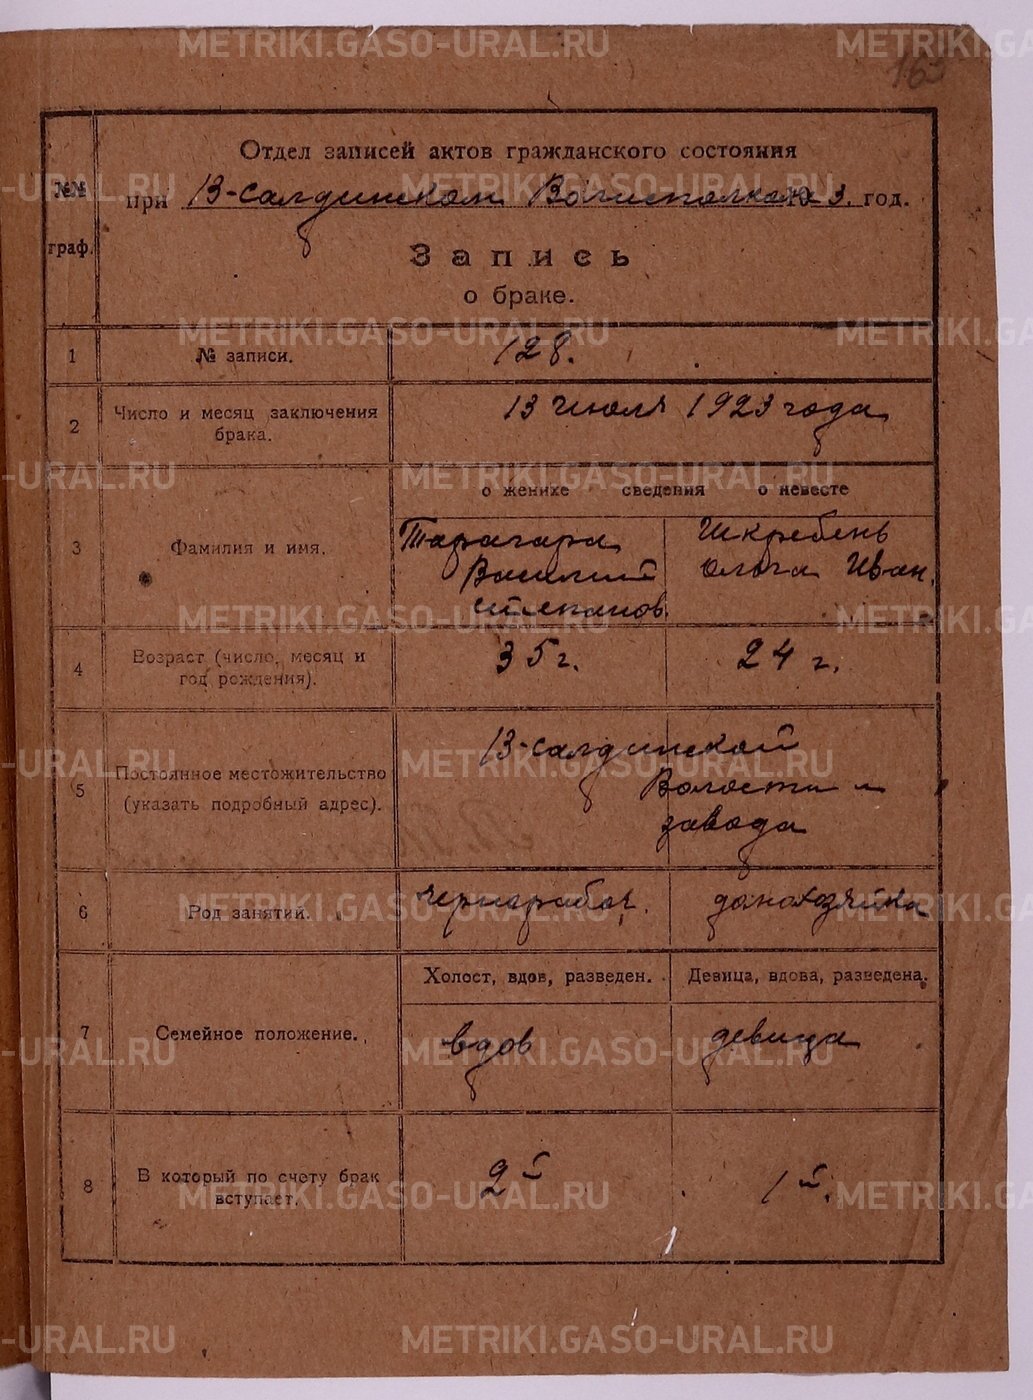 163
Отдел записей актов гражданского состояния
№№ граф.
при В-салдинском Волисполкоме 3. год.
Запись
о браке.
1 № записи. 128.
2 Число и месяц заключения брака. 13 июля 1923 года
о женихе сведения о невесте
3 Фамилия и имя.
Тарагара Шкребень
Василий Ольга Иван.
степанов.
4 Возраст (число, месяц и год рождения). 35 г. 24 г.
5 Постоянное местожительство (указать подробный адрес).
В-салдинской
Волости и
завода
6 Род занятий. чернорабоч. домохозяйка
Холост, вдов, разведен. Девица, вдова, разведена.
7 Семейное положение. вдов девица
8 В который по счету брак вступает. 2й 1й.
METRIKI.GASO-URAL.RU